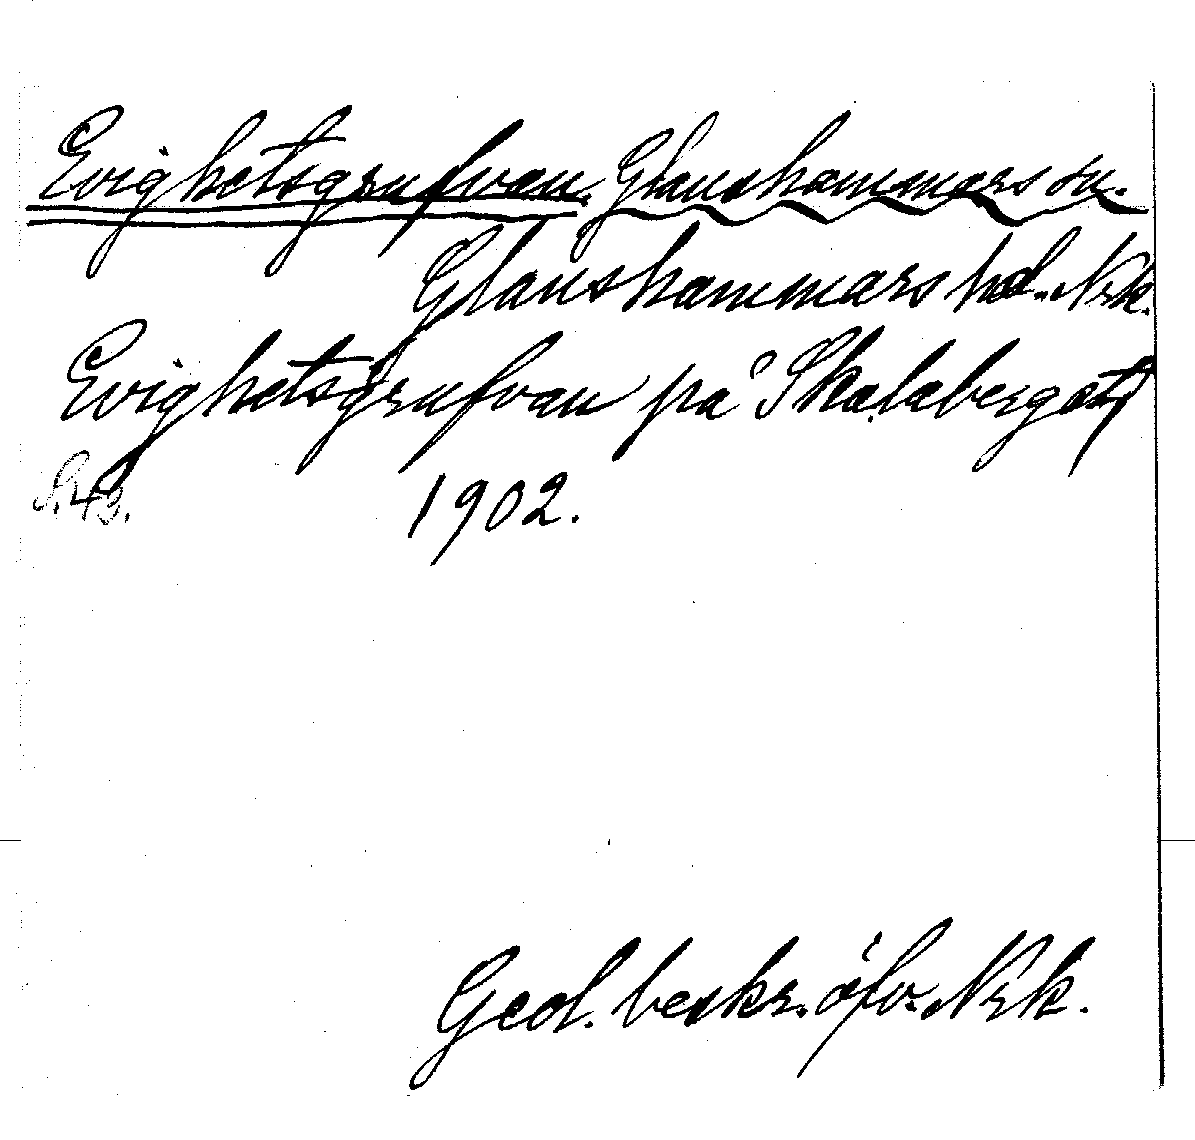 Evighetsgrufvan. Glanshammars sn.
Glanshammars hd. Nrk.
Evighetsgrufvan på Skalaberget,
S. 43. 1902.
Geol. beskr. öfv. Nrk.